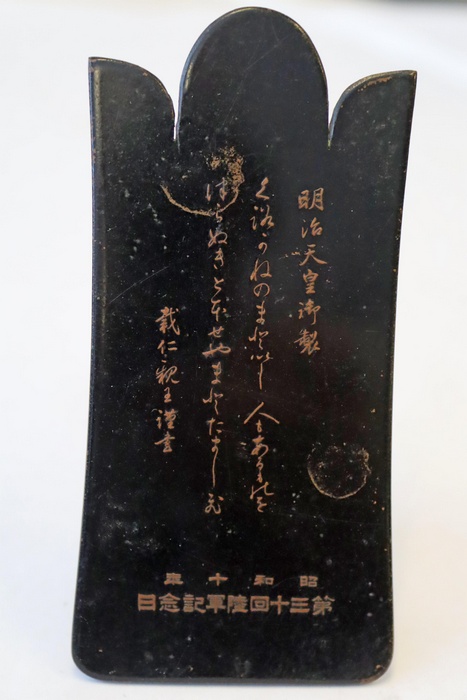 明治天皇御製
く路かねのまと以し人もあるものを
津らぬきとほせやまとたましひ
載仁親王謹書
昭和十年
第三十回陸軍記念日